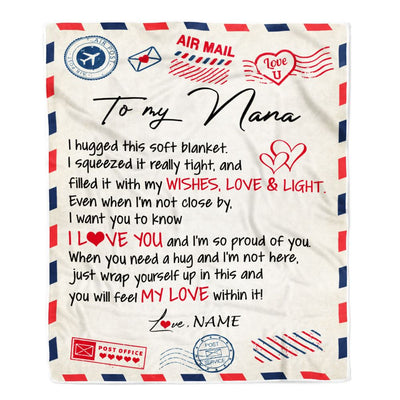 AIR MAIL
Love U
To my Nana
I hugged this soft blanket.
I squeezed it really tight, and
filled it with my WISHES, LOVE & LIGHT.
Even when I'm not close by,
I want you to know
I L♥VE YOU and I'm so proud of you.
When you need a hug and I'm not here,
just wrap yourself up in this and
you will feel MY LOVE within it!
Love, NAME
POST OFFICE
POST
SERVICE